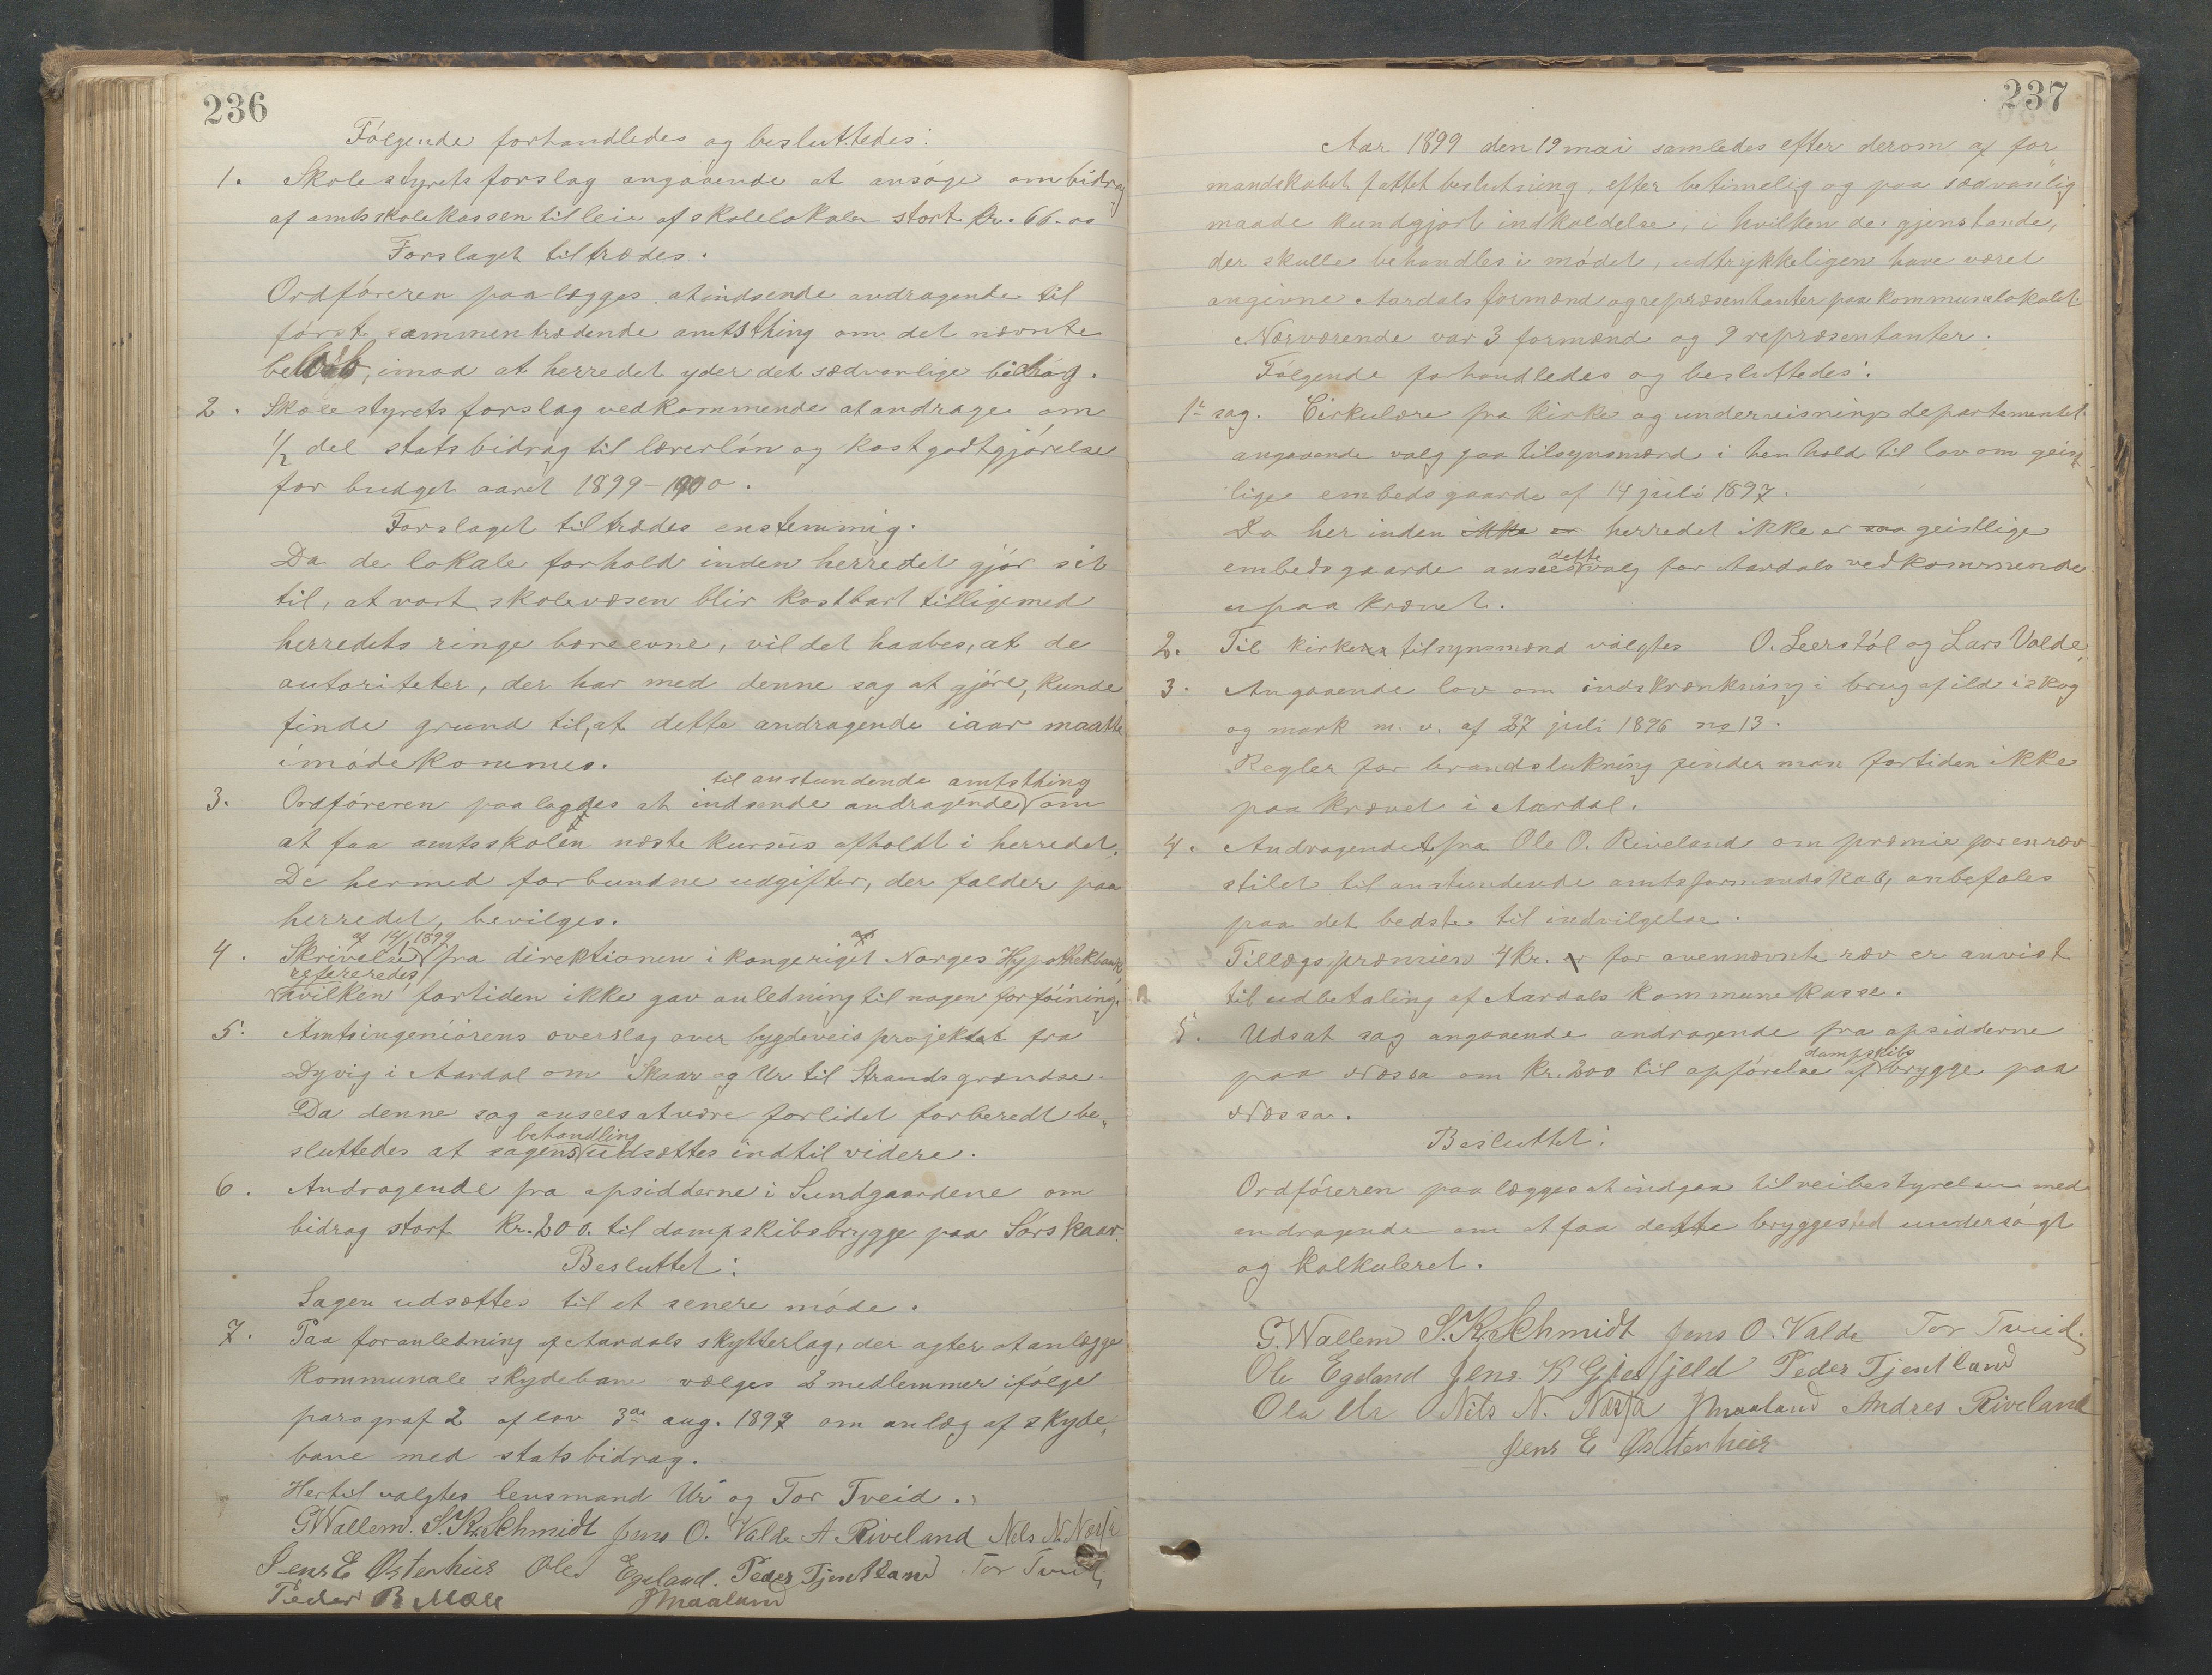 236
Følgende forhandledes og besluttedes:
1. Skolestyrets forslag angaaende at ansøge om bidrag
af amtsskolekassen til leie af skolelokaler stort kr. 66.00
Forslaget tiltrædes.
Ordføreren paalægges at indsende andragende til
først sammentrædende amtsthing om det nævnte
beløb, imod at herredet yder det sædvanlige bidrag.
2. Skolestyrets forslag vedkommende at andrage om
1/2 del statsbidrag til lærerløn og kostgodtgjørelse
for budgetaaret 1899-1900.
Forslaget tiltrædes enstemmig.
Da de lokale forhold inden herredet gjør sit
til, at vort skolevæsen blir kostbart tilligemed
herredets ringe bæreevne, vil det haabes, at de
autoriteter, der har med denne sag at gjøre, kunde
finde grund til, at dette andragende iaar maatte
imødekommes.
til anstundende amtsthing
3. Ordføreren paalægges at indsende andragende om
at faa amtsskolen næste kursus afholdt i herredet.
De hermed forbundne udgifter, der falder paa
herredet, bevilges.
af 14/1 1899
4. Skrivelse fra direktionen i kongeriget Norges Hypothekbank
refereredes
hvilken fortiden ikke gav anledning til nogen forføining.
5. Amtsingeniørens overslag over bygdeveisprojektet fra
Dyvig i Aardal om Skaar og Ur til Strands grændse.
Da denne sag ansees at være forlidet forberedt be„
behandling
sluttedes at sagens udsættes indtil videre.
6. Andragende fra opsidderne i Sundgaardene om
bidrag stort kr. 200. til dampskibsbrygge paa Sørskaar.
Besluttet:
Sagen udsættes til et senere møde.
7. Paa foranledning af Aardals skytterlag, der agter at anlægge
kommunale skydebane vælges 2 medlemmer ifølge
paragraf 2 af lov 3die aug. 1897 om anlæg af skyde„
bane med statsbidrag.
Hertil valgtes lensmand Ur og Tor Tveid.
G Wallem. S. K. Schmidt Jens O. Valde A. Riveland Nels N. Næssa
Jens E Østerhus Ole Egeland. Peder Tjentland Tor Tveid
Peder B Mæle J Maaland
237
Aar 1899 den 19 mai samledes efter derom af for„
mandskabet fattet beslutning, efter betimelig og paa sædvanlig
maade kundgjort indkaldelse, i hvilken de gjenstande,
der skulle behandles i mødet, udtrykkeligen have været
angivne Aardals formænd og repræsentanter paa kommunelokalet.
Nærværende var 3 formænd og 9 repræsentanter.
Følgende forhandledes og besluttedes:
1ste sag. Cirkulære fra kirke og undervisnings departementet
angaaende valg paa tilsynsmænd i henhold til lov om geist-
lige embedsgaarde af 14 juli 1897.
Da her inden ikke er herredet ikke er saa geistlige
dette
embedsgaarde ansees valg for Aardals vedkommende
upaakrævet.
2. Til kirkens tilsynsmænd valgtes O. Leerstøl og Lars Valde.
3. Angaaende lov om indskrænkning i brug af ild i skog
og mark m. v. af 27 juli 1896 no 13.
Regler for brandslukning finder man fortiden ikke
paakrævet i Aardal.
4. Andragendet fra Ole O. Riveland om præmie for en ræv
stilet til anstundende amtsformandskab, anbefales
paa det bedste til indvilgelse.
Tillægspræmien 4 kr. for ovennævnte ræv er anvist
til udbetaling af Aardals kommunekasse.
5. Udsat sag angaaende andragende fra opsidderne
dampskibs
paa Næssa om kr. 200 til opførelse af brygge paa
Næssa.
Besluttet:
Ordføreren paalægges at indgaa til veibestyrelsen med
andragende om at faa dette bryggested undersøgt
og kalkuleret.
G. Wallem S. K. Schmidt Jens O. Valde Tor Tveid.
Ole Egeland Jens K Gjesfjeld Peder Tjentland
Ola Ur Nils N. Næssa J Maaland Andres Riveland
Jens E Østerhus